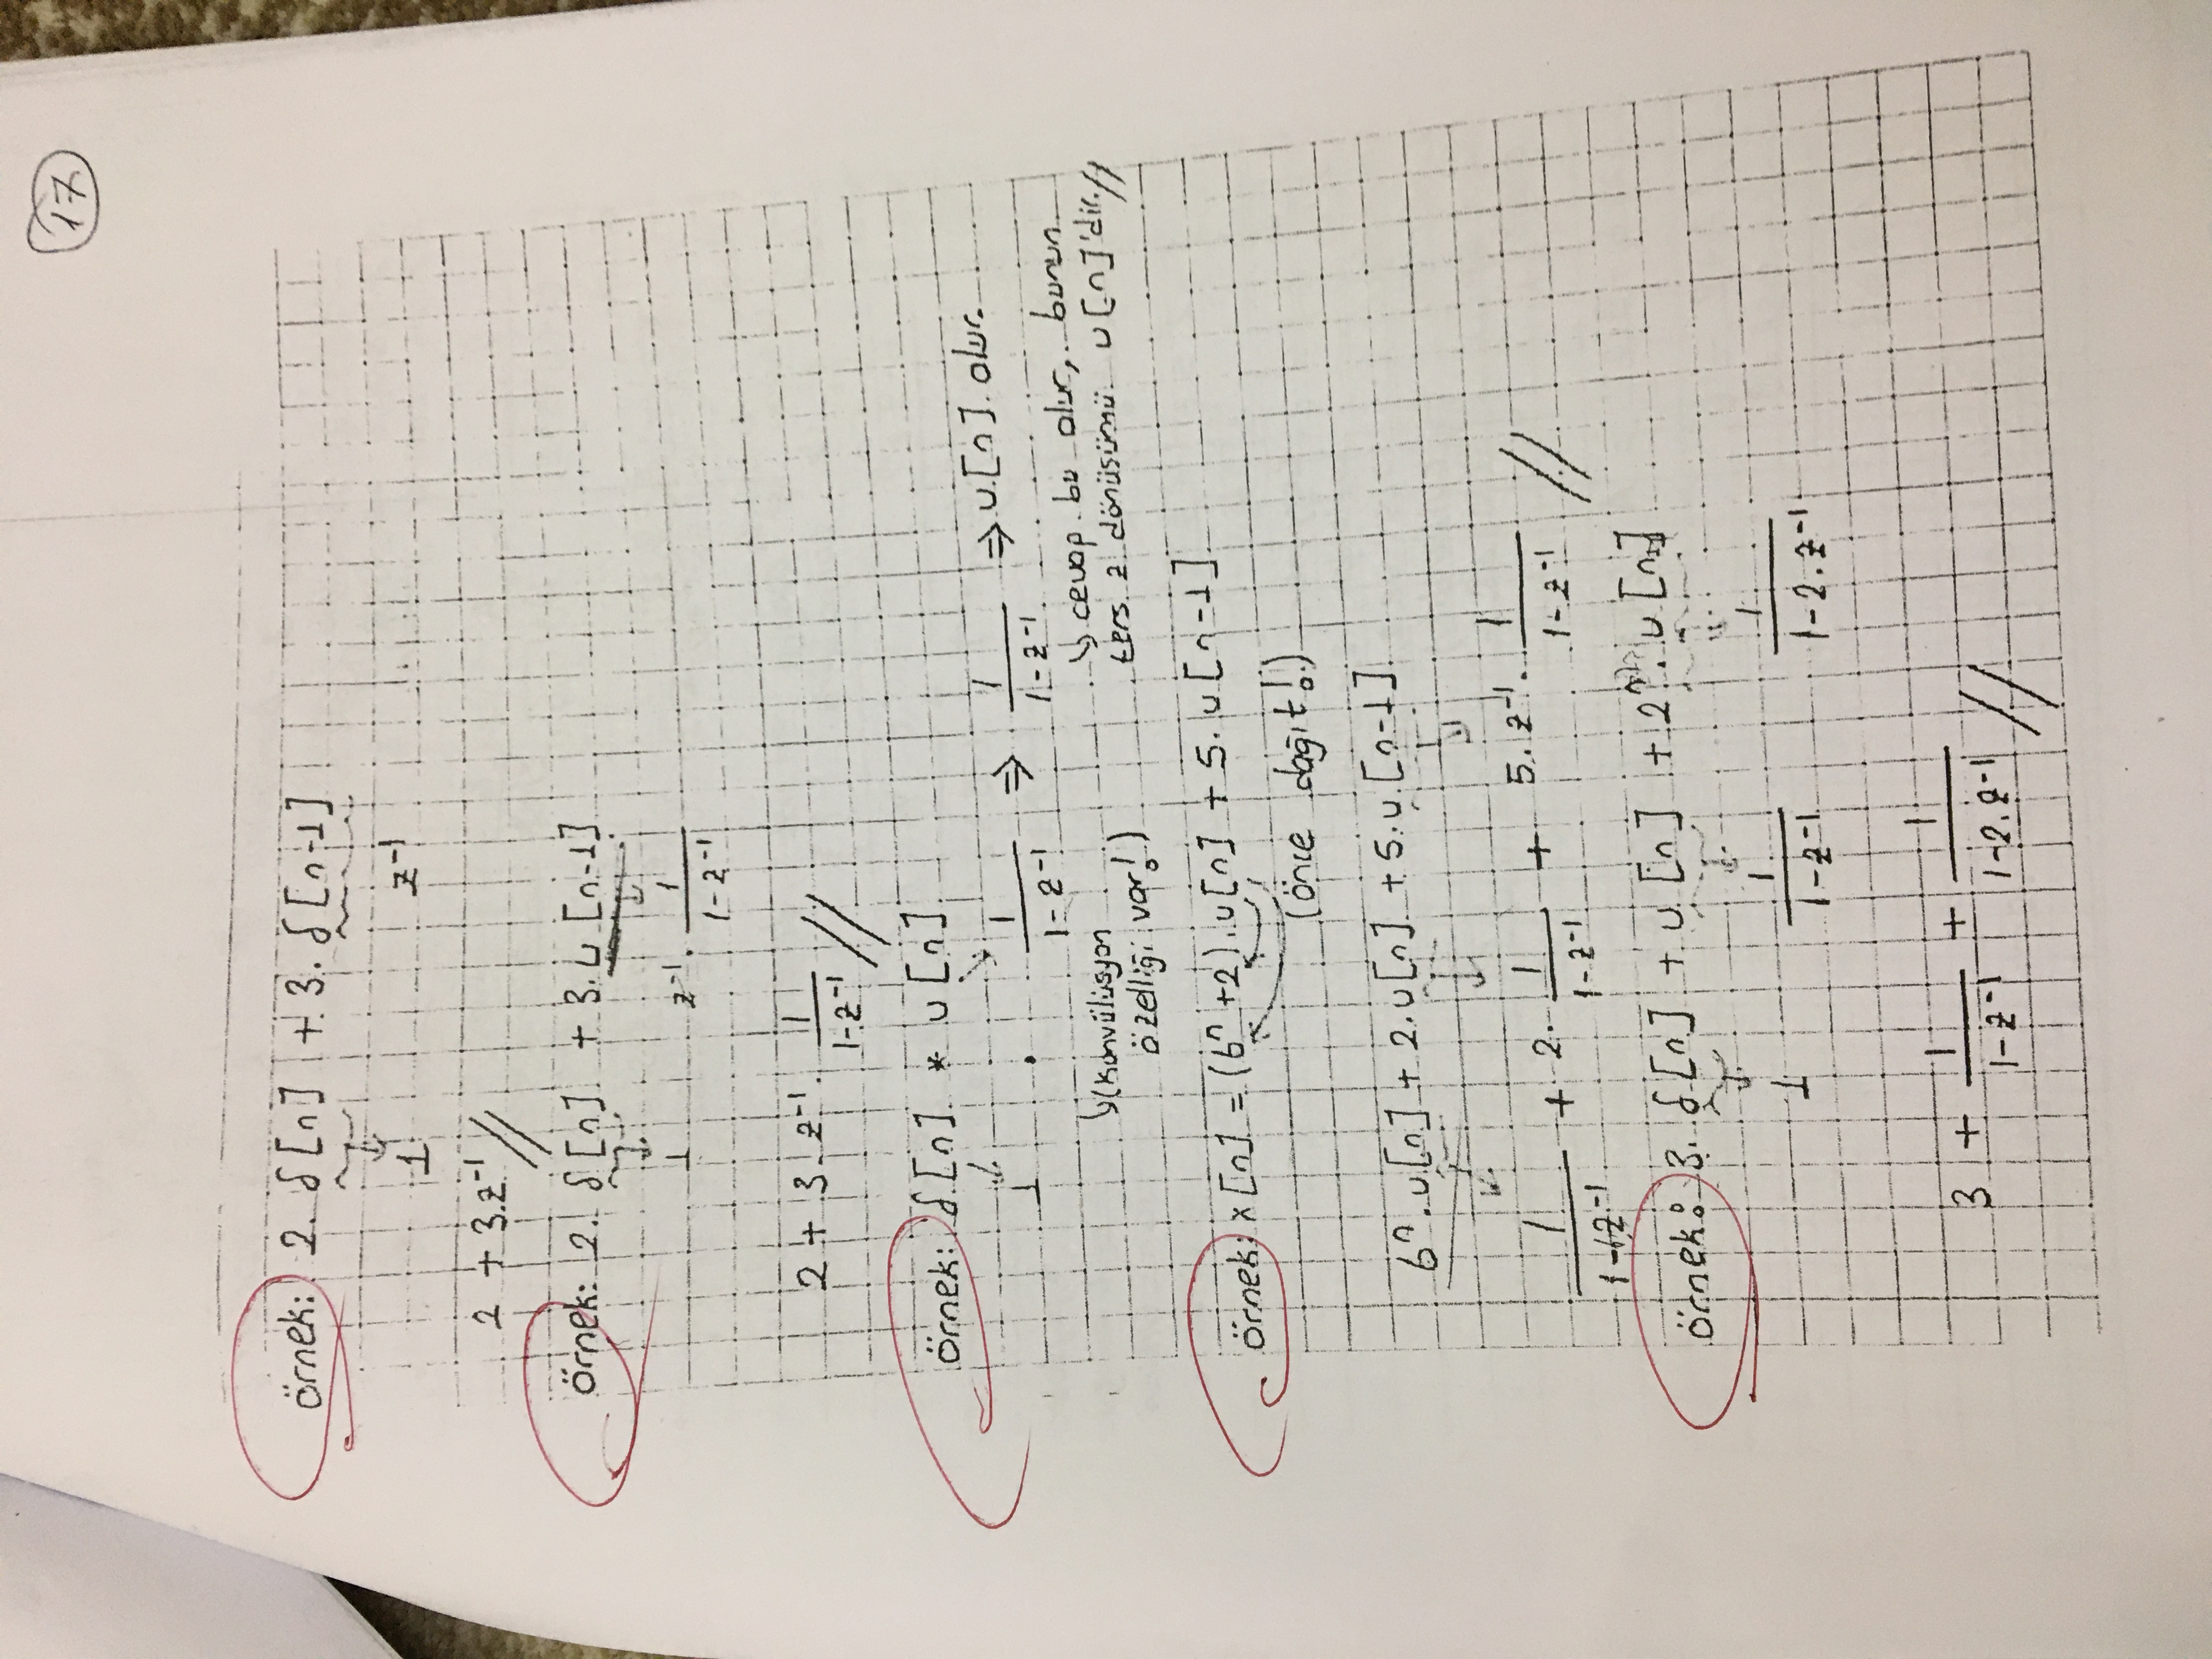 17
örnek: 2. δ[n] + 3. δ[n-1]
1 z⁻¹
2 + 3.z⁻¹ //
örnek: 2. δ[n] + 3. u[n-1]
1 z⁻¹ . 1/(1-z⁻¹)
2 + 3. z⁻¹ . 1/(1-z⁻¹) //
örnek: δ[n] * u[n]
1 . 1/(1-z⁻¹) ⇒ 1/(1-z⁻¹) ⇒ u[n] olur.
↳(konvülüsyon özelliği var!)
↳ cevap bu olur, bunun
ters z dönüsümü u[n]'dir.//
örnek: x[n] = (6ⁿ+2). u[n] + 5. u[n-1]
(önce dağıt!)
6ⁿ. u[n] + 2. u[n] + 5. u[n-1]
1/(1-6z⁻¹) + 2. 1/(1-z⁻¹) + 5. z⁻¹. 1/(1-z⁻¹) //
örnek: 3. δ[n] + u[n] + 2ⁿ. u[n]
1 1/(1-z⁻¹) 1/(1-2.z⁻¹)
3 + 1/(1-z⁻¹) + 1/(1-2.z⁻¹) //